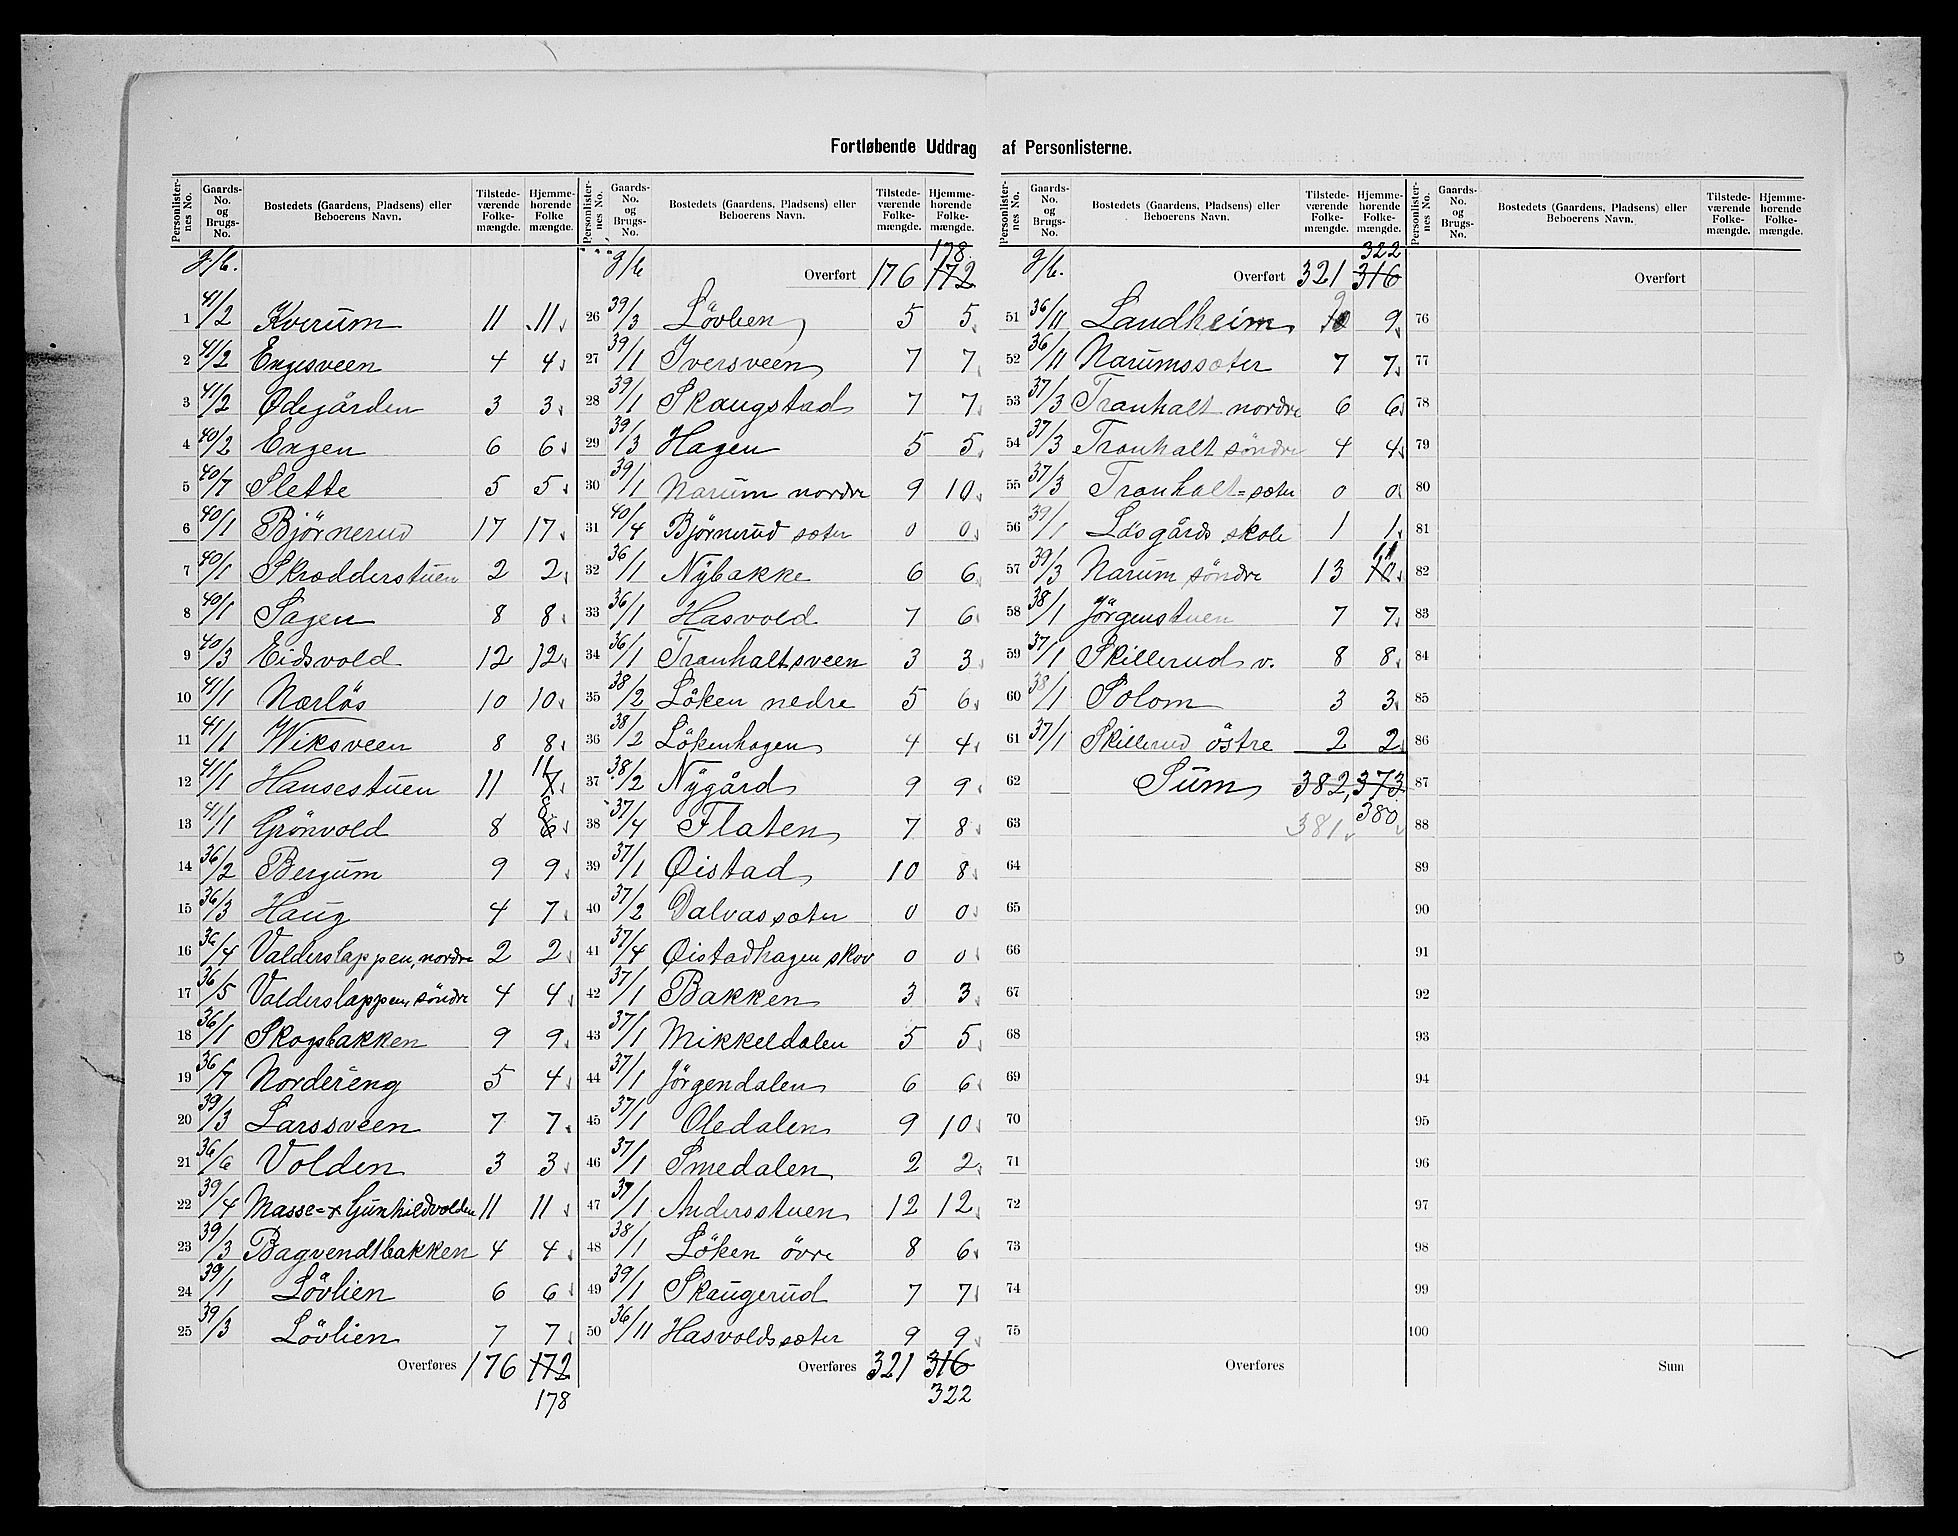 Fortløbende Uddrag af Personlisterne.
Personlisternes No. Gaards-No. og Brugs-No. Bostedets (Gaardens, Pladsens) eller Beboerens Navn. Tilstedeværende Folkemængde. Hjemmehørende Folkemængde.
g/b.
1 41/2 Kverum 11 11
2 41/2 Engesveen 4 4
3 41/2 Ødegården 3 3
4 40/2 Engen 6 6
5 40/7 Slette 5 5
6 40/1 Bjørnerud 17 17
7 40/1 Skrædderstuen 2 2
8 40/1 Sagen 8 8
9 40/3 Eidsvold 12 12
10 41/1 Nærlös 10 10
11 41/1 Wiksveen 8 8
12 41/1 Hansestuen 11 7 11
13 41/1 Grönvold 8 6 8
14 36/2 Bergum 9 9
15 36/3 Haug 4 7
16 36/4 Valderslappen, nordre 2 2
17 36/5 Valderslappen, söndre 4 4
18 36/1 Skogsbakken 9 9
19 36/7 Nordereng 5 4
20 39/3 Larssveen 7 7
21 36/6 Volden 3 3
22 39/4 Masse- & Gunhildvolden 11 11
23 39/3 Bagvendtbakken 4 4
24 39/1 Lövlien 6 6
25 39/3 Lövlien 7 7
Overføres 176 172
178
Personlisternes No. Gaards-No. og Brugs-No. Bostedets (Gaardens, Pladsens) eller Beboerens Navn. Tilstedeværende Folkemængde. Hjemmehørende Folkemængde.
178
g/b Overført 176 172
26 39/3 Lövlien 5 5
27 39/1 Iversveen 7 7
28 39/1 Skaugstad 7 7
29 39/3 Hagen 5 5
30 39/1 Narum nordre 9 10
31 40/4 Bjørnerud sæter 0 0
32 36/1 Nybakke 6 6
33 36/1 Hasvold 7 6
34 36/1 Tranhaltsveen 3 3
35 38/2 Löken nedre 5 6
36 38/2 Lökenhagen 4 4
37 38/2 Nygård 9 9
38 37/4 Flaten 7 8
39 37/1 Øistad 10 8
40 37/2 Dalvassæter 0 0
41 37/4 Øistadhagen skov 0 0
42 37/1 Bakken 3 3
43 37/1 Mikkeldalen 5 5
44 37/1 Jörgendalen 6 6
45 37/1 Oledalen 9 10
46 37/1 Smedalen 2 2
47 37/1 Andersstuen 12 12
48 38/1 Löken övre 8 6
49 39/1 Skaugerud 7 7
50 36/11 Hasvoldsæter 9 9
Overføres 321 316
322
Personlisternes No. Gaards-No. og Brugs-No. Bostedets (Gaardens, Pladsens) eller Beboerens Navn. Tilstedeværende Folkemængde. Hjemmehørende Folkemængde.
322
g/b. Overført 321 316
51 36/11 Landheim 10 9 9
52 36/11 Narumssæter 7 7
53 37/3 Tranhalt nordre 6 6
54 37/3 Tranhalt söndre 4 4
55 37/3 Tranhalt=sæter 0 0
56 39/1 Lösgårds skole 1 1
57 39/3 Narum söndre 13 10 11
58 38/1 Jörgenstuen 7 7
59 37/1 Skillerud v. 8 8
60 38/1 Solom 3 3
61 37/1 Skillerud östre 2 2
62 Sum 382, 373
63 381 380
64
65
66
67
68
69
70
71
72
73
74
75
Overføres
Personlisternes No. Gaards-No. og Brugs-No. Bostedets (Gaardens, Pladsens) eller Beboerens Navn. Tilstedeværende Folkemængde. Hjemmehørende Folkemængde.
Overført
76
77
78
79
80
81
82
83
84
85
86
87
88
89
90
91
92
93
94
95
96
97
98
99
100
Sum